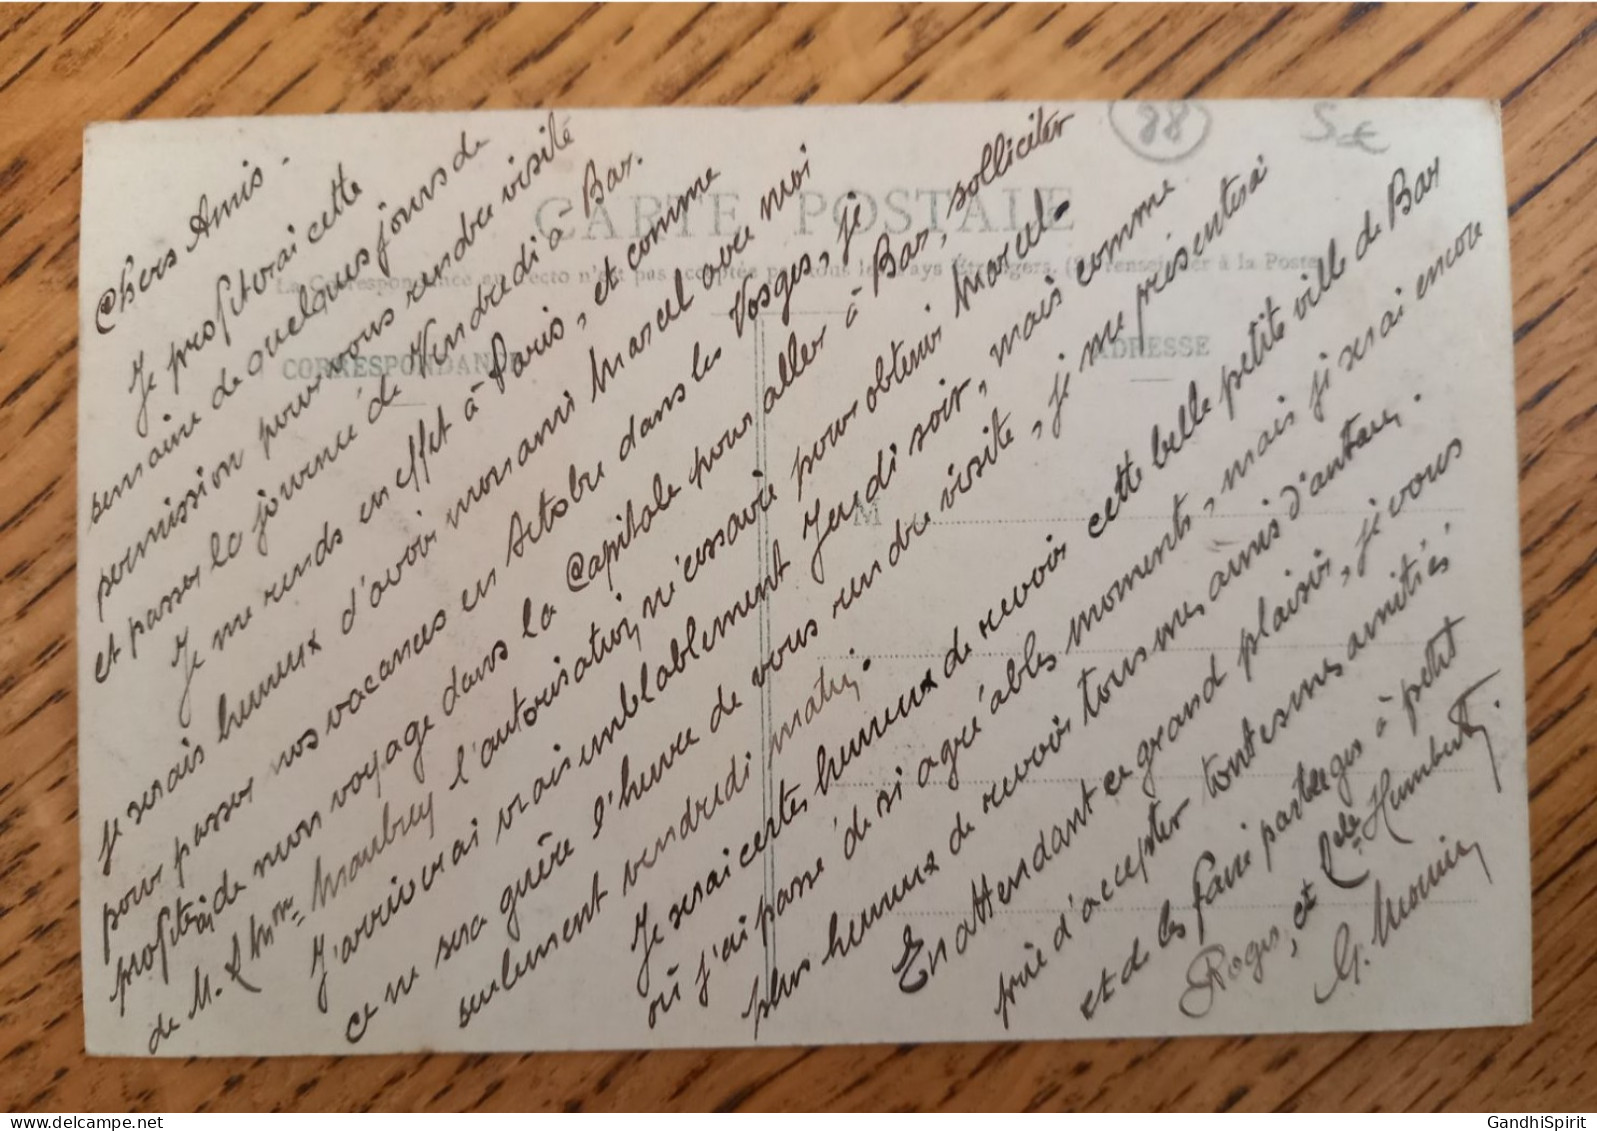 88
5€
CARTE POSTALE
La Correspondance au recto n'est pas acceptée par tous les Pays Étrangers. (Se renseigner à la Poste
CORRESPONDANCE
ADRESSE
M
Chers Amis -
Je profiterai cette
semaine de quelques jours de
permission pour vous rendre visite
et passer la journée de Vendredi à Bar.
Je me rends en effet à Paris, et comme
je serais heureux d'avoir mon ami Marcel avec moi
pour passer nos vacances en Octobre dans les Vosges, je
profiterai de mon voyage dans la Capitale pour aller à Bar, solliciter
de M. & Mme Maubrey l'autorisation nécessaire pour obtenir Marcel.
J'arriverai vraisemblablement Jeudi soir, mais comme
ce ne sera guère l'heure de vous rendre visite, je me présenterai
seulement vendredi matin.
Je serai certes heureux de revoir cette belle petite ville de Bar
où j'ai passé de si agréables moments, mais je serai encore
plus heureux de revoir tous mes amis d'antan.
En attendant ce grand plaisir, je vous
prie d'accepter toutes mes amitiés
et de les faire partager à petit
Roger, et Mlle Humbert.
G. Mounier
GandhiSpirit
delcampe.net